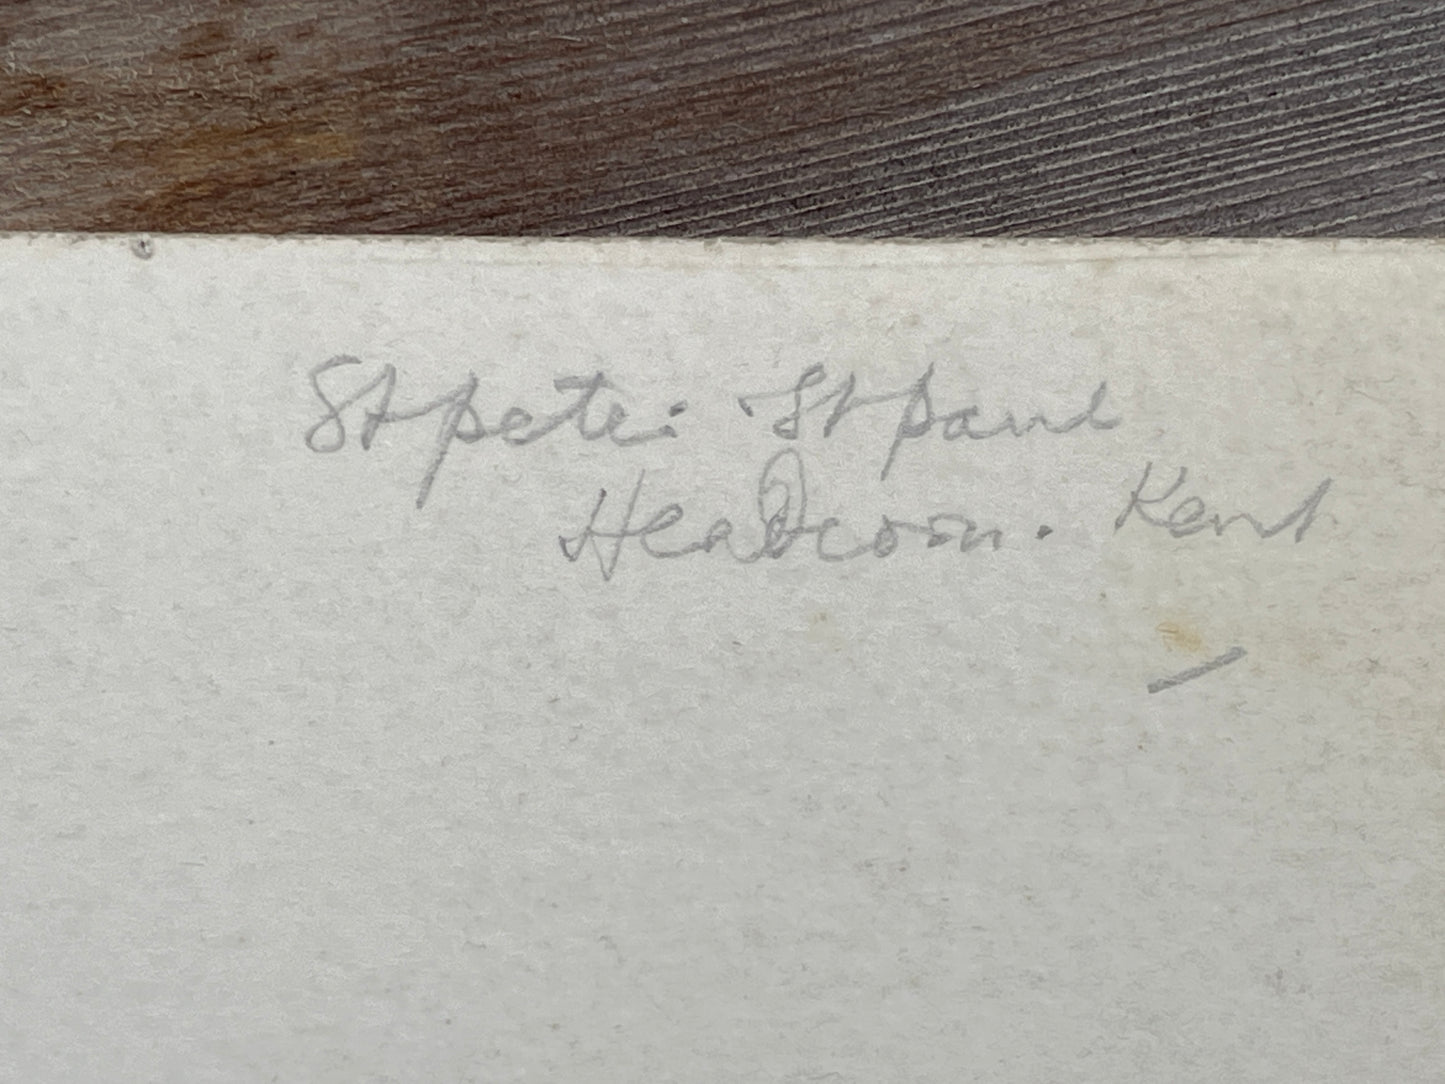 St Peter. St Paul
Headcorn. Kent